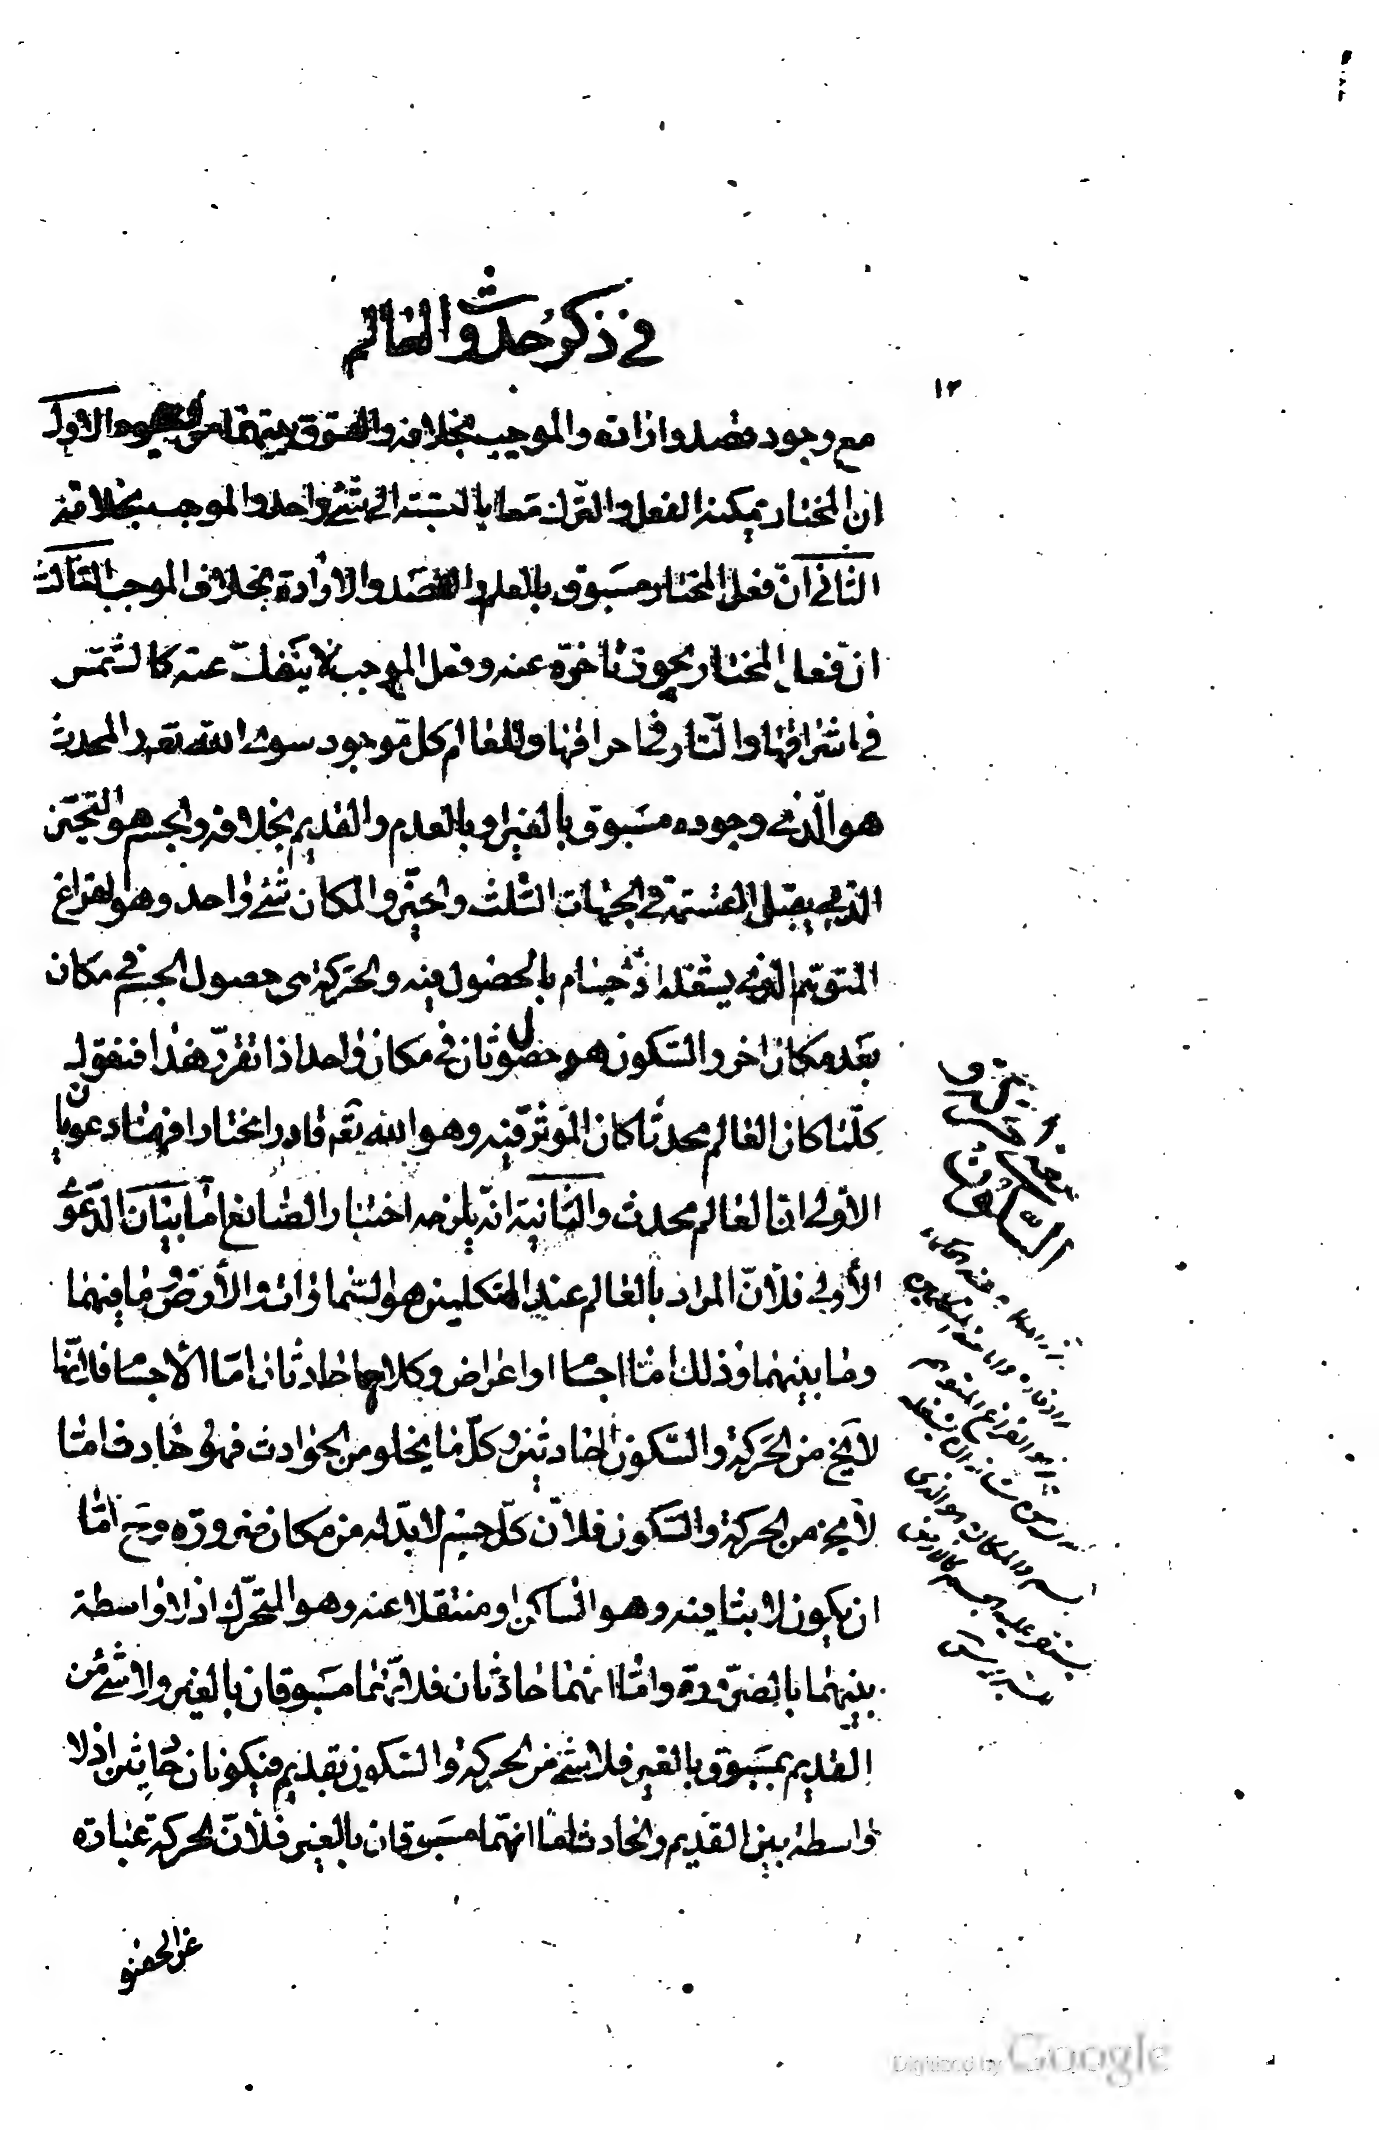 في ذكر حدوث العالم
١٣
مع وجود قصد وارادة والموجب بخلافه والفرق بينهما من وجوه الاول
ان المختار يمكنه الفعل والترك معا بالنسبة الى شئ واحد والموجب بخلافه
الثاني انّ فعل المختار مسبوق بالعلم والقصد والارادة بخلاف الموجب الثالث
انّ فعل المختار يجوز تأخره عنه وفعل الموجب لا ينفك عنه كالشمس
في اشراقها والنار في احراقها والعالم كل موجود سوى الله تعه والمحدث
هو الّذي وجوده مسبوق بالغير او بالعدم والقديم بخلافه والجسم هو المتحيّز
الذي يقبل القسمة في الجهات الثلث والحيّز والمكان شئ واحد وهو الفراغ
المتوهّم الذي يشغله الاجسام بالحصول فيه والحركة هي حصول الجسم في مكان
بعد مكان اخر والسكون هو حصول ثان في مكان واحد اذا تقرّر هذا فنقول
كلّما كان العالم محدثا كان المؤثر فيه وهو الله تعه قادرا مختارا فهنا دعويان
الاولى ان العالم محدث والثانية انّه يلزمه اختيار الصانع امّا بيان الدّعوى
الأولى فلأنّ المراد بالعالم عند المتكلمين هو السّموات والأرض وما فيهما
وما بينهما وذلك امّا اجسام او اعراض وكلاهما حادثان امّا الأجسام فانها
لا يخ من الحركة والسكون الحادثين وكلّ ما لا يخلو من الحوادث فهو حادث امّا انها
لا يخ من الحركة والسكون فلانّ كلّ جسم لا بدّ له من مكان ضرورة وح امّا
ان يكون لابثا فيه وهو الساكن او منتقلا عنه وهو المتحرّك اذ لا واسطة
بينهما بالضرورة وامّا انهما حادثان فلانّهما مسبوقان بالغير ولا شئ من
القديم بمسبوق بالغير فلا شئ من الحركة والسكون بقديم فيكونان حادثين اذ لا
واسطة بين القديم والحادث امّا انهما مسبوقان بالغير فلأنّ الحركة عبارة
السكون
هو الفراغ المتوهم
والمكان هو الذي
يستقر عليه الجسم كالارض
للسرير
عن الحصول
Digitized by Google